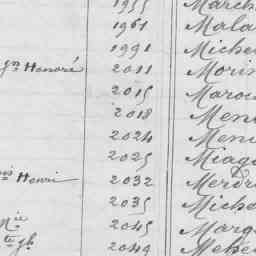 1955 March
1961 Mala
1991 Miche
yn Honoré 2011 Morin
2015 Marou
2018 Men
2024 Men
2025 Miag
is Henri 2032 Merdr
2035 Micho
Mie 2045 Marg
te yh 2049 Mehe